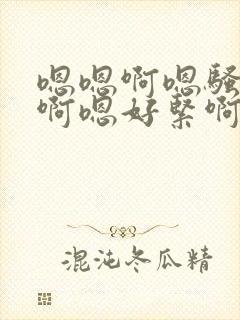 嗯嗯啊嗯骚
啊嗯好紧啊
混沌冬瓜精